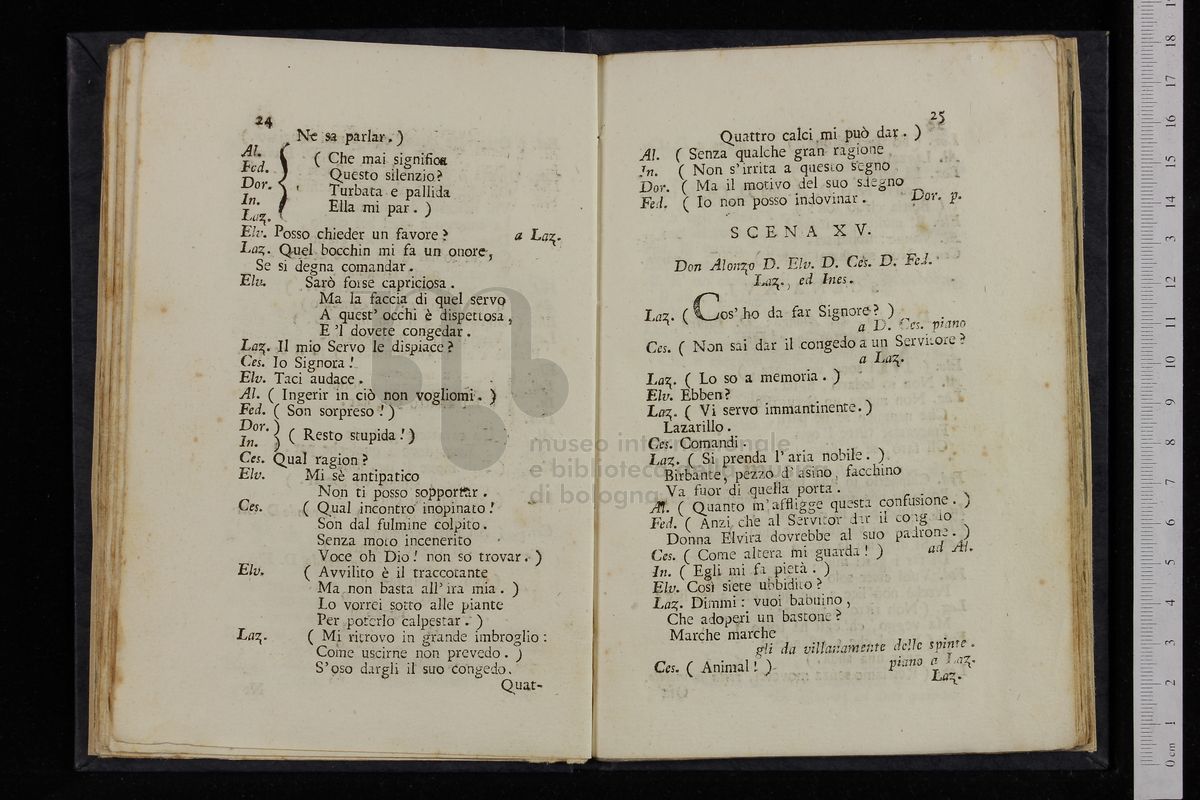 24
Ne sa parlar.)
Al. ( Che mai significa
Fed. Questo silenzio?
Dor. Turbata e pallida
In. Ella mi par. )
Laz.
Elv. Posso chieder un favore? a Laz.
Laz. Quel bocchin mi fa un onore,
Se si degna comandar.
Elv. Sarò forse capriciosa.
Ma la faccia di quel servo
A quest' occhi è dispettosa,
E 'l dovete congedar.
Laz. Il mio Servo le dispiace?
Ces. Io Signora!
Elv. Taci audace.
Al. ( Ingerir in ciò non vogliomi. )
Fed. ( Son sorpreso! )
Dor.
In. ( Resto stupida! )
Ces. Qual ragion?
Elv. Mi sè antipatico
Non ti posso sopportar.
Ces. ( Qual incontro inopinato!
Son dal fulmine colpito.
Senza moto incenerito
Voce oh Dio! non so trovar. )
Elv. ( Avvilito è il traccotante
Ma non basta all' ira mia. )
Lo vorrei sotto alle piante
Per poterlo calpestar. )
Laz. ( Mi ritrovo in grande imbroglio:
Come uscirne non prevedo. )
S'oso dargli il suo congedo.
Quat-
25
Quattro calci mi può dar. )
Al. ( Senza qualche gran ragione
In. ( Non s'irrita a questo segno
Dor. ( Ma il motivo del suo sdegno
Fed. ( Io non posso indovinar. Dor. p.
SCENA XV.
Don Alonzo D. Elv. D. Ces. D. Fed.
Laz., ed Ines.
Laz. ( Cos' ho da far Signore? )
a D. Ces. piano
Ces. ( Non sai dar il congedo a un Servitore?
a Laz.
Laz. ( Lo so a memoria. )
Elv. Ebben?
Laz. ( Vi servo immantinente.)
Lazarillo.
Ces. Comandi.
Laz. ( Si prenda l'aria nobile. )
Birbante, pezzo d'asino, facchino
Va fuor di quella porta.
Al. ( Quanto m'affligge questa confusione. )
Fed. ( Anzi che al Servitor dir il congedo
Donna Elvira dovrebbe al suo padrone. )
Ces. ( Come altera mi guarda! ) ad Al.
In. ( Egli mi fa pietà. )
Elv. Così siete ubbidito?
Laz. Dimmi: vuoi babuino,
Che adoperi un bastone?
Marche marche
gli da villanamente delle spinte.
Ces. ( Animal! ) piano a Laz.
Laz.
museo internazionale
e biblioteca della musica
di bologna
0 cm 1 2 3 4 5 6 7 8 9 10 11 12 13 14 15 16 17 18